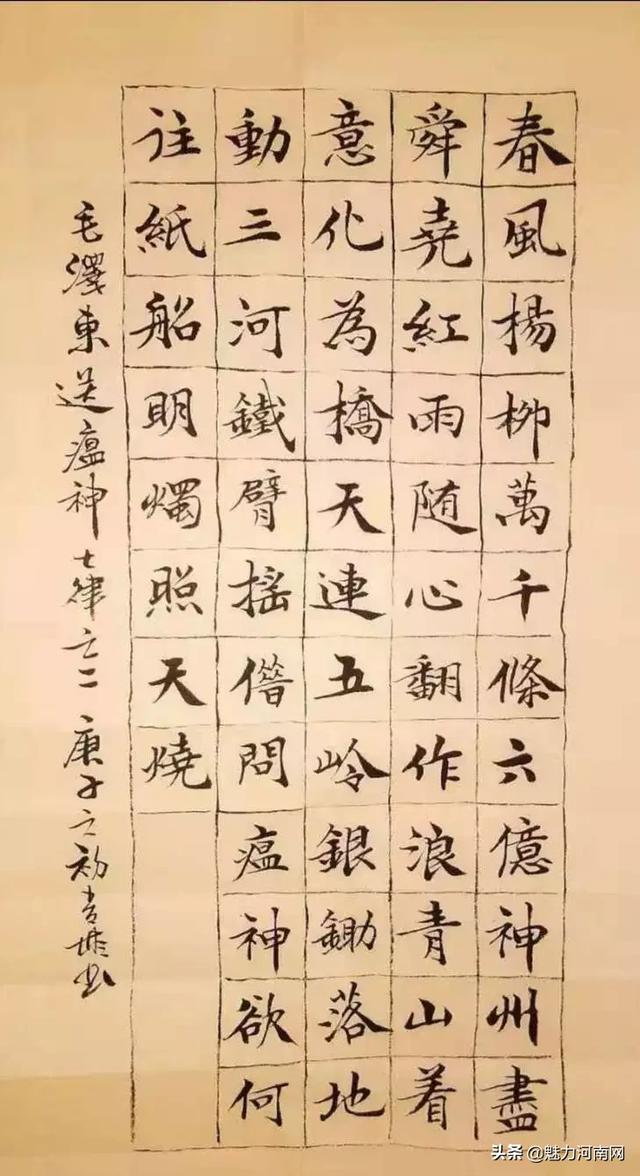 春風楊柳萬千條六億神州盡
舜堯紅雨随心翻作浪青山着
意化為橋天連五岭銀鋤落地
動三河鐵臂摇僭問瘟神欲何
往紙船明燭照天燒
毛澤東送瘟神七律之二 庚子之初 书
头条 @魅力河南网